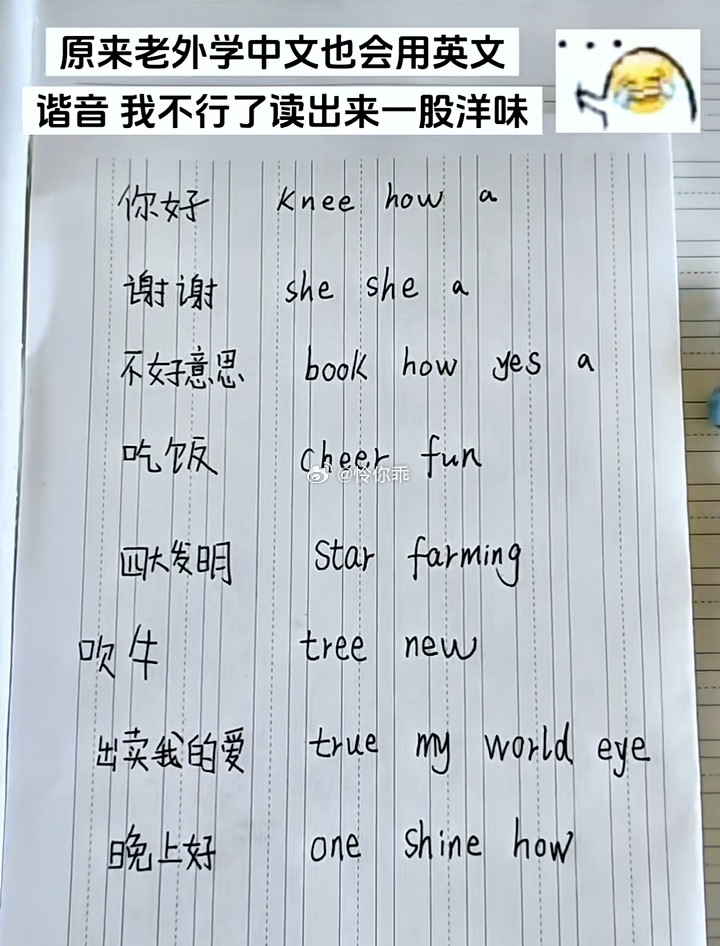 原来老外学中文也会用英文
谐音 我不行了读出来一股洋味
你好 knee how a
谢谢 she she a
不好意思 book how yes a
吃饭 cheer fun
@怜你乖
四大发明 star farming
吹牛 tree new
出卖我的爱 true my world eye
晚上好 one shine how